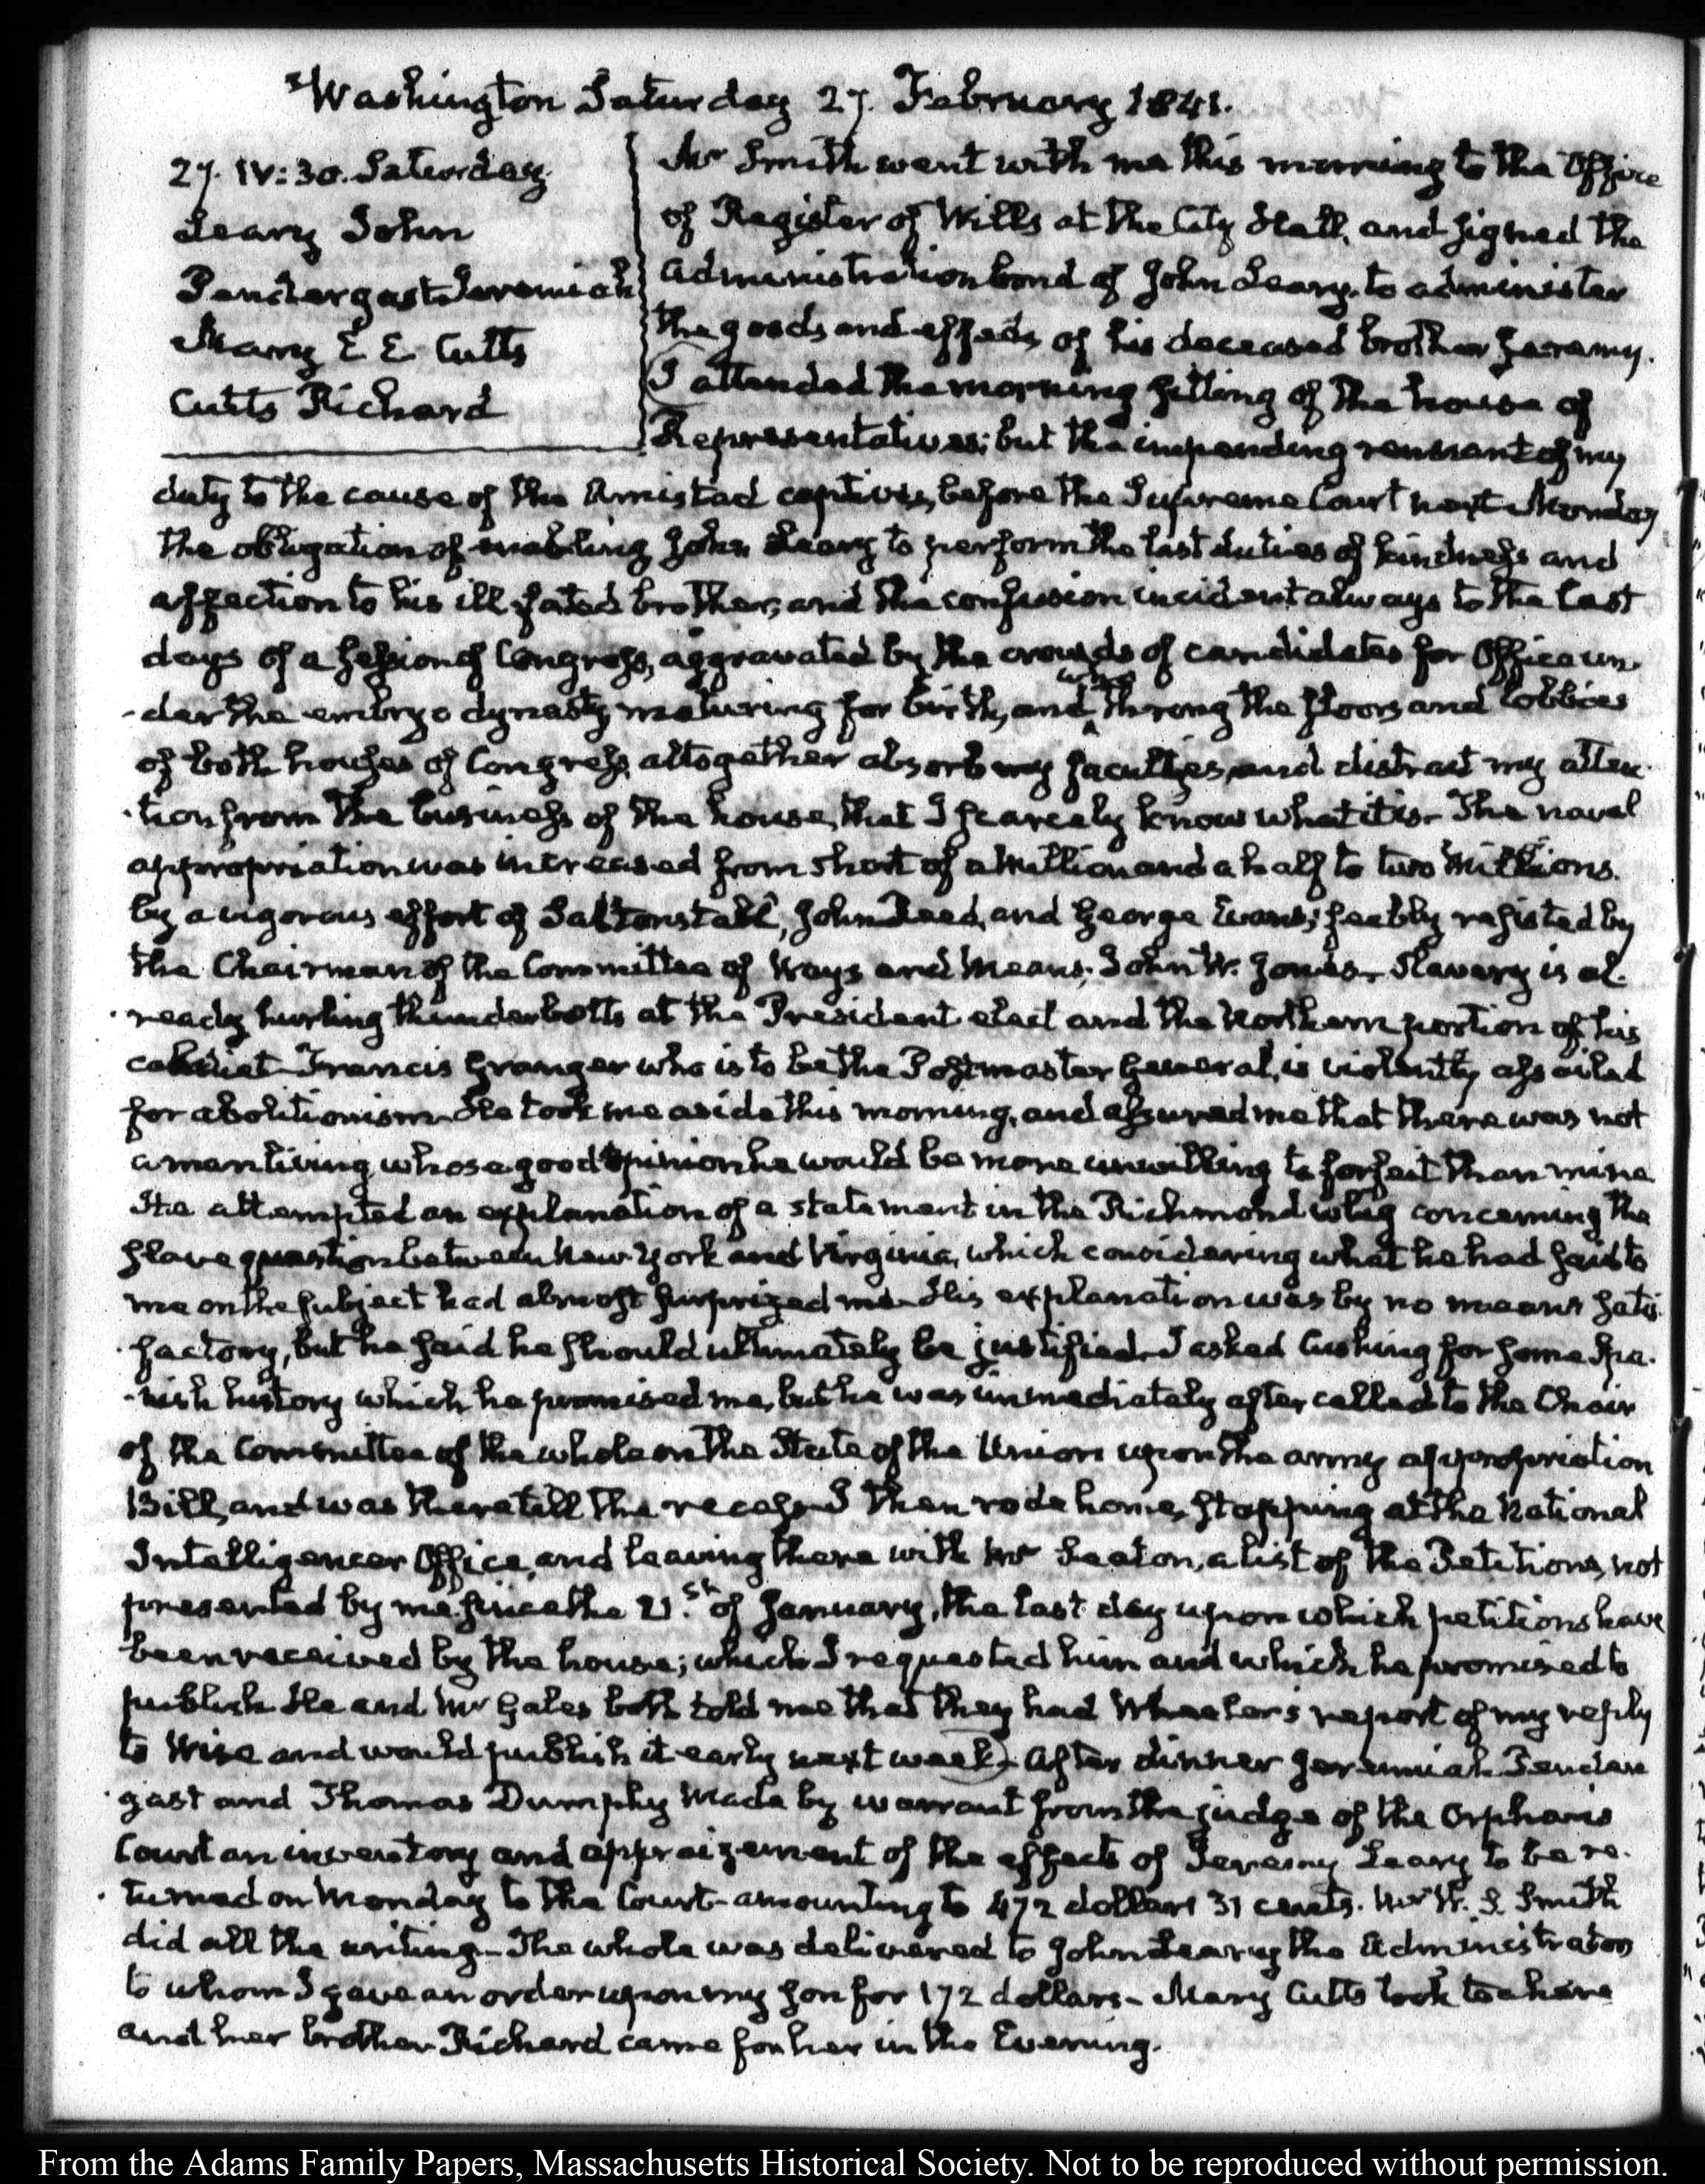 Washington Saturday 27. February 1841.
27. IV:30. Saturday
Leary John
Pendergast Jeremiah
Mary E E Cutts
Cutts Richard
Mr Smith went with me this morning to the Office
of Register of Wills at the City Hall, and signed the
administration bond of John Leary, to administer
the goods and effects of his deceased brother Jeremy.
I attended the morning sitting of the house of
Representatives; but the impending remnant of my
duty to the cause of the Amistad captives, before the Supreme Court next Monday
the obligation of enabling John Leary to perform the last duties of kindness and
affection to his ill fated brother, and the confusion incident always to the last
days of a session of Congress, aggravated by the crowds of candidates for Office un-
-der the embryo dynasty maturing for birth, and who throng the floors and lobbies
of both houses of Congress, altogether absorb my faculties, and distract my atten-
-tion from the business of the house, that I scarcely know what it is. The naval
appropriation was increased from short of a Million and a half to two Millions.
by a vigorous effort of Saltonstall, John Reed, and George Evans; feebly resisted by
the Chairman of the Committee of Ways and Means, John W. Jones. Slavery is al-
-ready hurling thunderbolts at the President elect and the Northern portion of his
cabinet. Francis Granger who is to be the Postmaster General, is violently assailed
for abolitionism. He took me aside this morning, and assured me that there was not
a man living, whose good opinion he would be more unwilling to forfeit than mine
He attempted an explanation of a statement in the Richmond whig concerning the
slave question between New-York and Virginia, which considering what he had said to
me on the subject had almost surprized me. His explanation was by no means satis-
-factory, but he said he should ultimately be justified. I asked Cushing for some Spa-
-nish history which he promised me, but he was immediately after called to the Chair
of the Committee of the whole on the State of the Union upon the army appropriation
Bill, and was there till the recess. I then rode home, stopping at the National
Intelligencer Office, and leaving there with Mr Seaton, a list of the Petitions, not
presented by me since the 21.st of January, the last day upon which petitions have
been received by the house; which I requested him and which he promised to
publish. He and Mr Gales both told me that they had Wheeler's report of my reply
to Wise and would publish it early next week. After dinner Jeremiah Pender
-gast and Thomas Dumphy made by warrant from the judge of the Orphans
Court an inventory and appraizement of the effects of Jeremy Leary to be re-
-turned on Monday to the Court - amounting to 472 dollars 31 cents. Mr W. S. Smith
did all the writing. The whole was delivered to John Leary the Administrator
to whom I gave an order upon my son for 172 dollars - Mary Cutts took tea here
and her brother Richard came for her in the Evening.
From the Adams Family Papers, Massachusetts Historical Society. Not to be reproduced without permission.